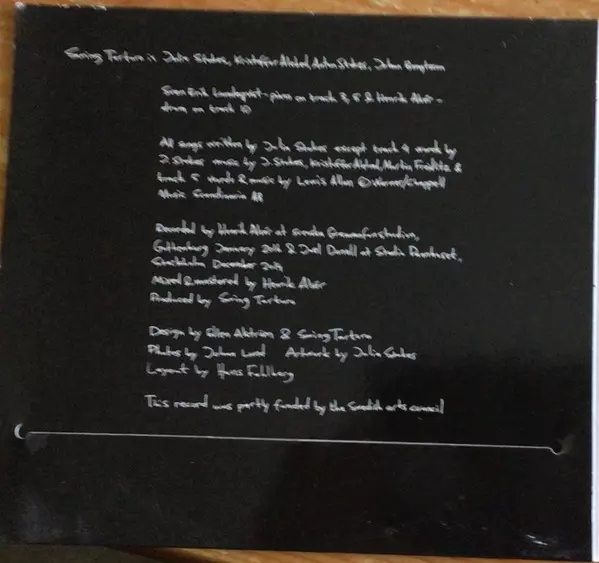 Swing Tortura is Julia Stakes, Kristoffer Alstad, Anton Stakes, Johan
Sven Erik Lundeqvist - piano on track 3, 5 & Henrik Alsér -
drums on track 10
All songs written by Julia Stakes except track 9 words by
J. Stakes music by J. Stakes, Kristoffer Alstad, Martin &
track 5 words & music by Lewis Allan © Warner/Chappell
Music Scandinavia AB
Recorded by Henrik Alsér at Svenska Grammofonstudion,
Gothenburg January & Joel at Studio
Stockholm December
Mixed & mastered by Henrik Alsér
Produced by Swing Tortura
Design by Ellen & Swing Tortura
Photos by Johan Artwork by Julia Stakes
Layout by Hans Fahlberg
This record was partly funded by the Swedish arts council